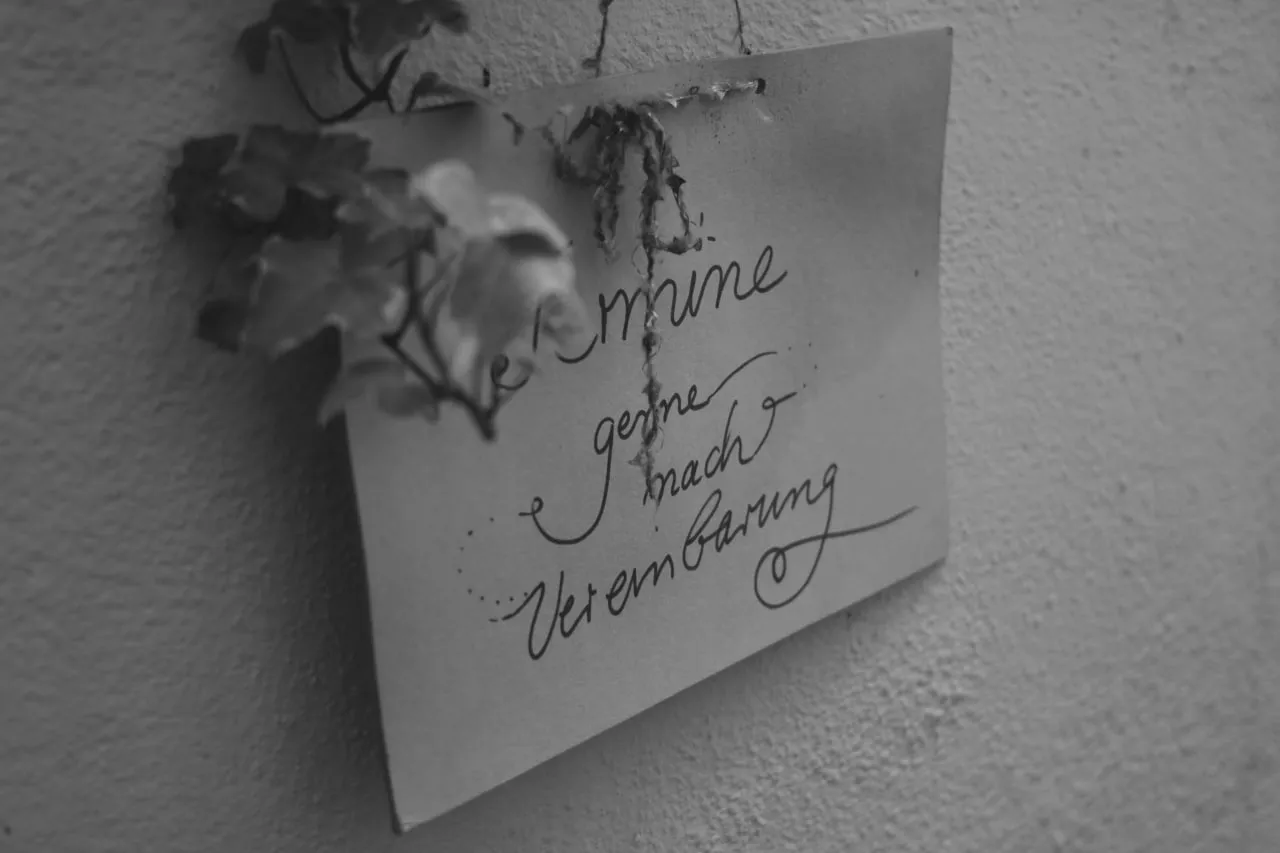 Termine
gerne
nach
Vereinbarung